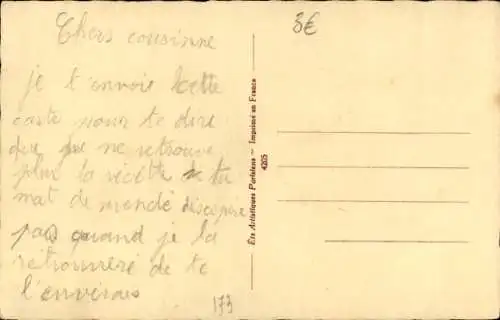 Chers cousinne
je t'envoie cette
carte pour te dire
que je ne retrouve
plus la recette tu
mat de mandé
pas quand je la
retrouveré de te
l'envérais
3€
173
Ets Artistiques Parisiens — Imprimé en France
4205